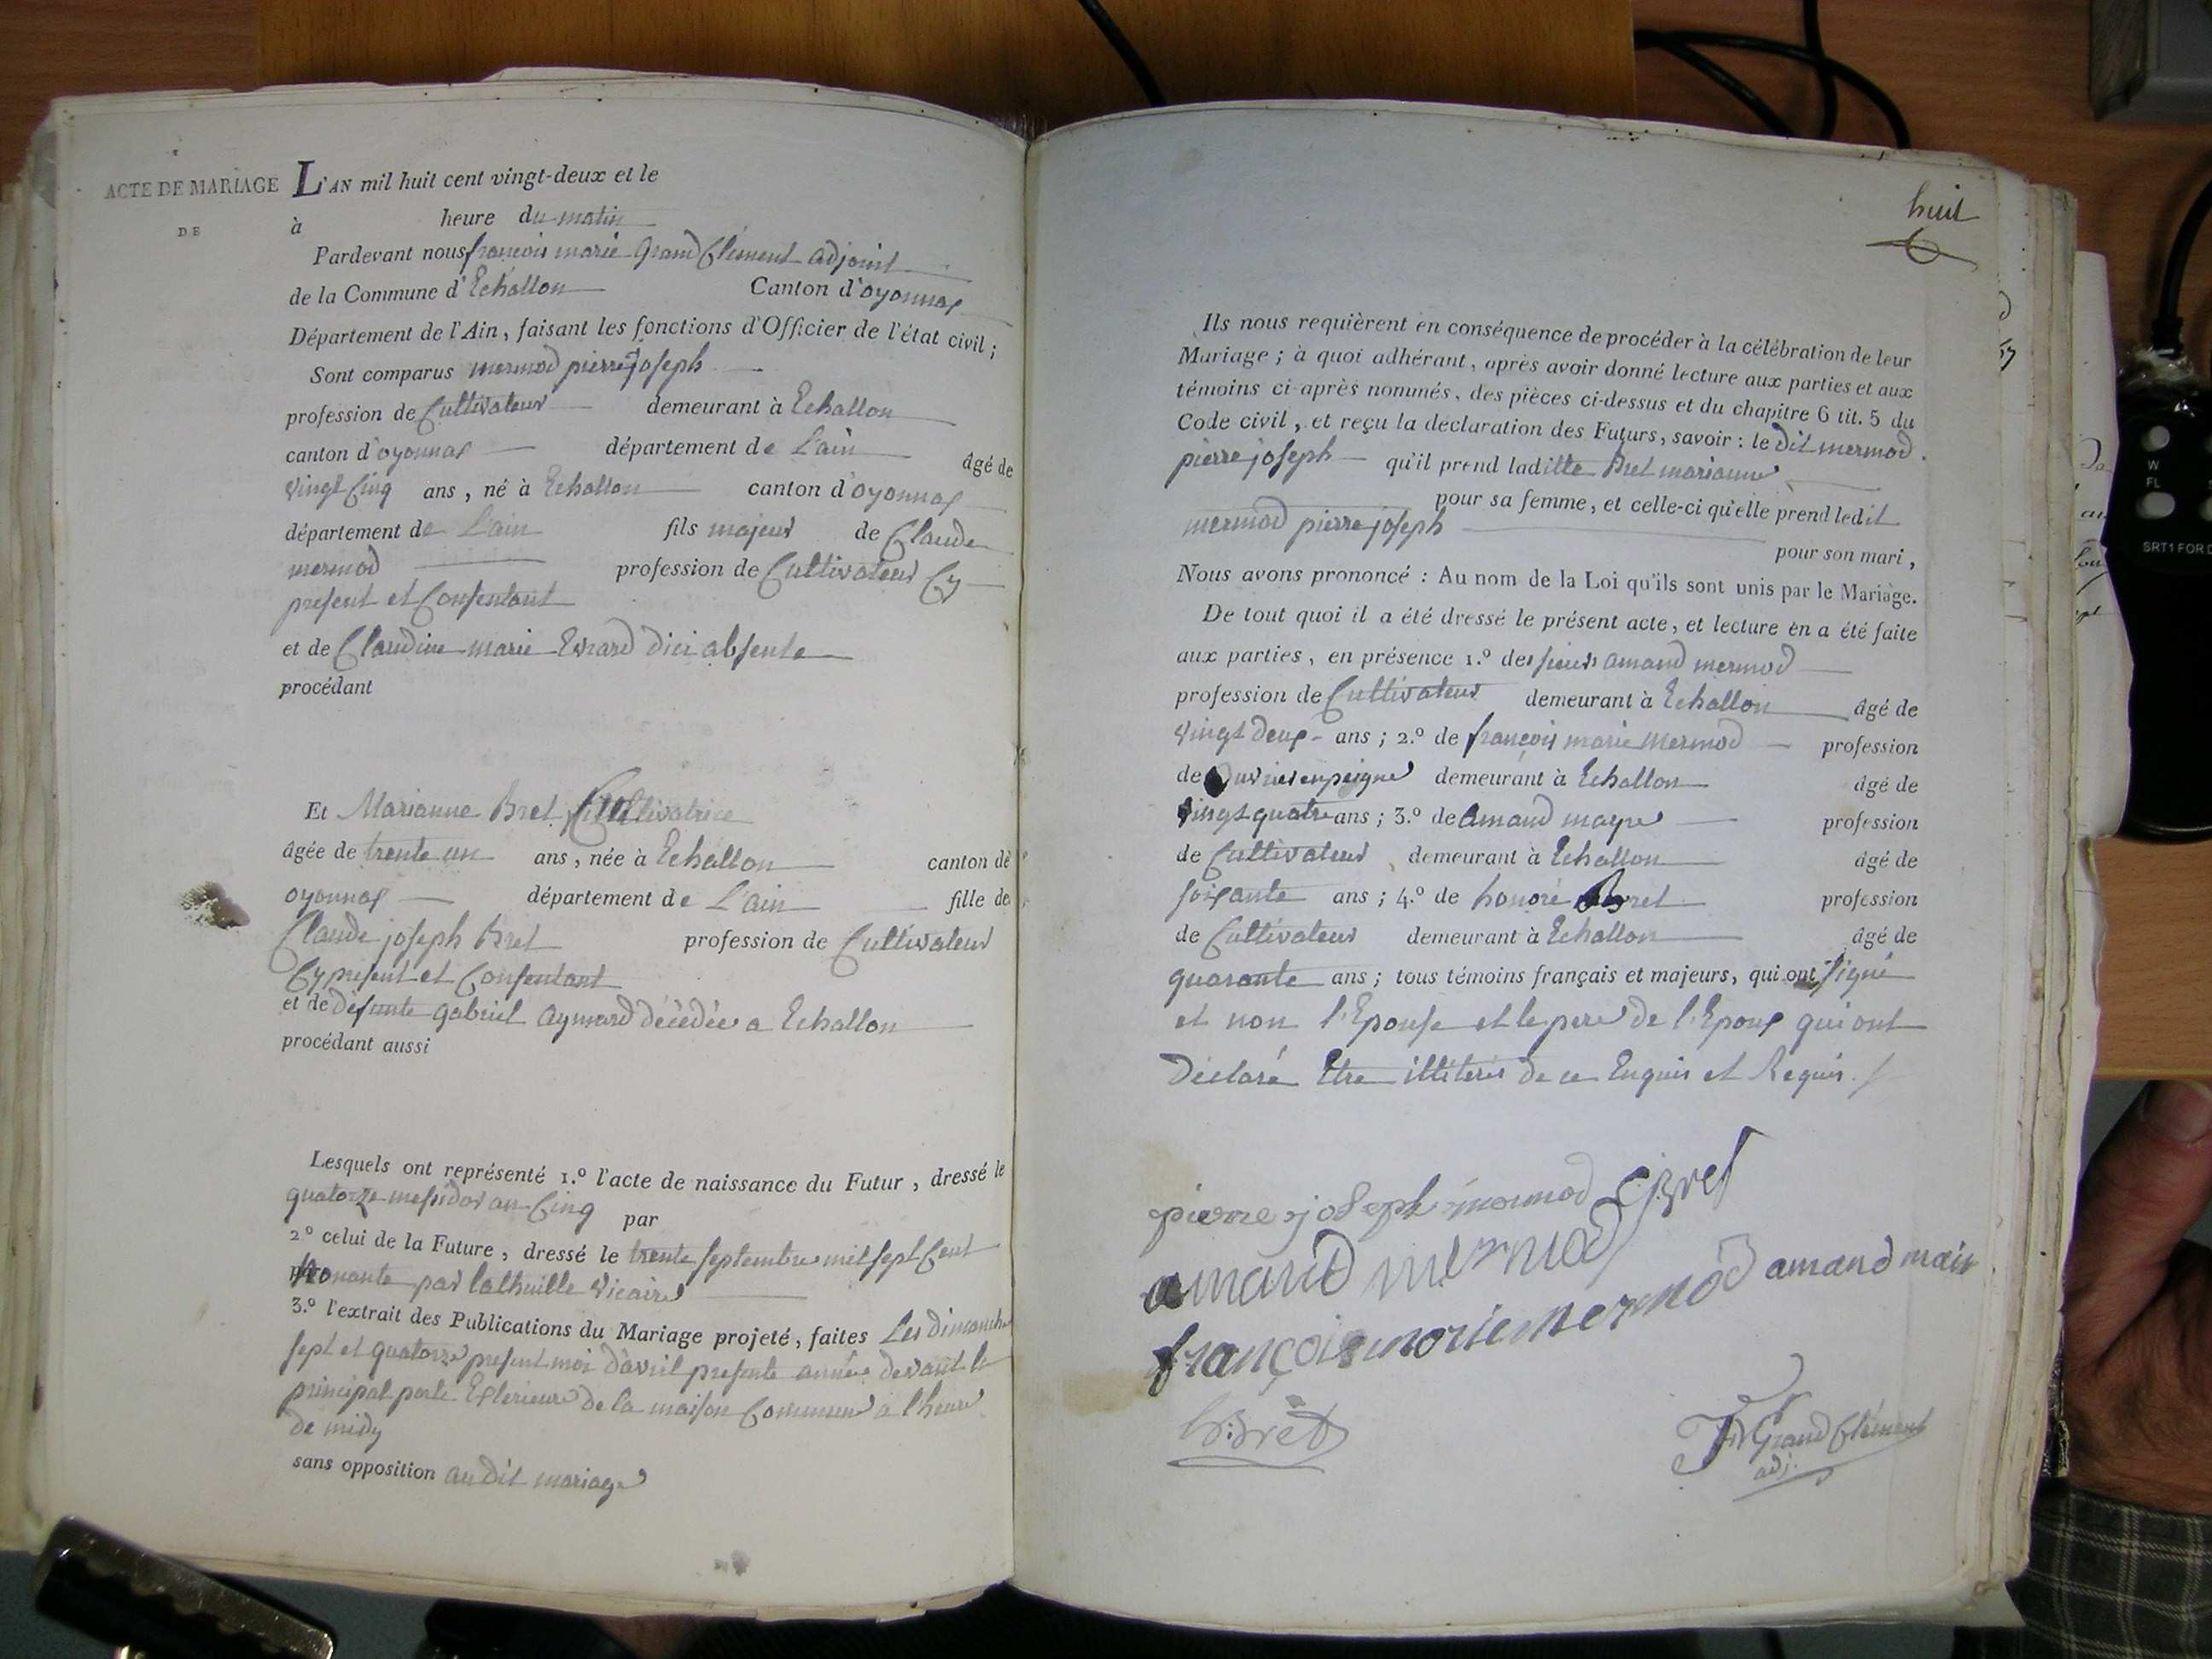 ACTE DE MARIAGE
DE
L'AN mil huit cent vingt-deux et le
à heure du matin
Pardevant nous françois marie Grand Clément adjoint
de la Commune d'Echallon Canton d'oyonnax
Département de l'Ain, faisant les fonctions d'Officier de l'état civil;
Sont comparus mermod pierre joseph
profession de Cultivateur demeurant à Echallon
canton d'oyonnax département de L'ain âgé de
vingt Cinq ans, né à Echallon canton d'oyonnax
département de L'ain fils majeur de Claude
mermod profession de Cultivateur Cy
present et Consentant
et de Claudine marie Evrard dici absente
procédant
Et Marianne Bret Cultivatrice
âgée de trente un ans, née à Echallon canton de
oyonnax département de L'ain fille de
Claude joseph Bret profession de Cultivateur
Cy present et Consentant
et de defunte gabriel aymard décédée a Echallon
procédant aussi
Lesquels ont représenté 1.º l'acte de naissance du Futur, dressé le
quatorze messidor an Cinq par
2º celui de la Future, dressé le trente septembre mil sept Cent
nonante par lathuille vicaire
3.º l'extrait des Publications du Mariage projeté, faites Les dimanche
sept et quatorze present moi d'avril presente année devant la
principal porte Exterieure de la maison Commune a l'heure
de midy
sans opposition au dit mariage
huit
Ils nous requièrent en conséquence de procéder à la célébration de leur
Mariage; à quoi adhérant, après avoir donné lecture aux parties et aux
témoins ci-après nommés, des pièces ci-dessus et du chapitre 6 tit. 5 du
Code civil, et reçu la declaration des Futurs, savoir: le dit mermod
pierre joseph qu'il prend laditte Bret marianne
pour sa femme, et celle-ci qu'elle prend ledit
mermod pierre joseph
pour son mari,
Nous avons prononcé: Au nom de la Loi qu'ils sont unis par le Mariage.
De tout quoi il a été dressé le présent acte, et lecture en a été faite
aux parties, en présence 1.º des sieurs amand mermod
profession de Cultivateur demeurant à Echallon âgé de
vingt deux ans; 2.º de françois marie mermod profession
de ouvrier en peigne demeurant à Echallon âgé de
vingt quatre ans; 3.º de amand mayre profession
de Cultivateur demeurant à Echallon âgé de
soixante ans; 4.º de honoré Bret profession
de Cultivateur demeurant à Echallon âgé de
quarante ans; tous témoins français et majeurs, qui ont signé
et non l'Epouse et le pere de l'Epoux qui ont
déclaré Etre illiterés de ce Enquis et Requis.
pierre joseph mermod C j Bret
amand mermod
amand mair
françois marie mermod
h: Bret
FM Grand Clément
adj.
W
FL
SRT1 FOR D